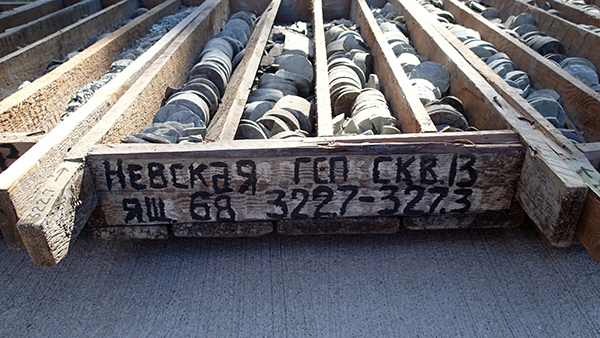 Невская ГСП СКВ.13
ЯЩ 68 322.7-327.3